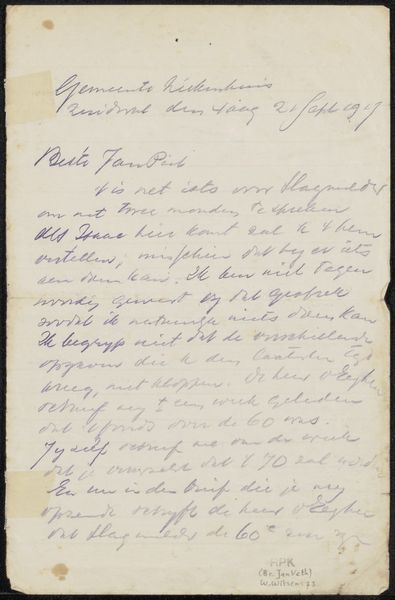 Gemeente Ziekenhuis
Zuidwal den Haag 21 Sept 1917
Beste Jan Piet
't is net iets voor Slagmulder
om met twee monden te spreken
Als Isaac hier komt zal ik 't hem
vertellen, misschien dat hij er iets
aan doen kan. Ik ben niet tegen
woordig geweest bij dat gesprek
zoodat ik niets doen kan
Ik begrijp niet dat de verschillende
opgaven die ik den laatsten tijd
kreeg, niet kloppen. De heer v Eeghen
schreef mij ± een week geleden
dat 't fonds over de 60 was.
Jijzelf schreef me van de week
dat je 't 70 zal worden
En nu in den brief die je mij
opzendt schrijft de heer v Eeghen
dat Slagmulder de 60
RPK
(Br. Jan Veth)
W. Witsen 73